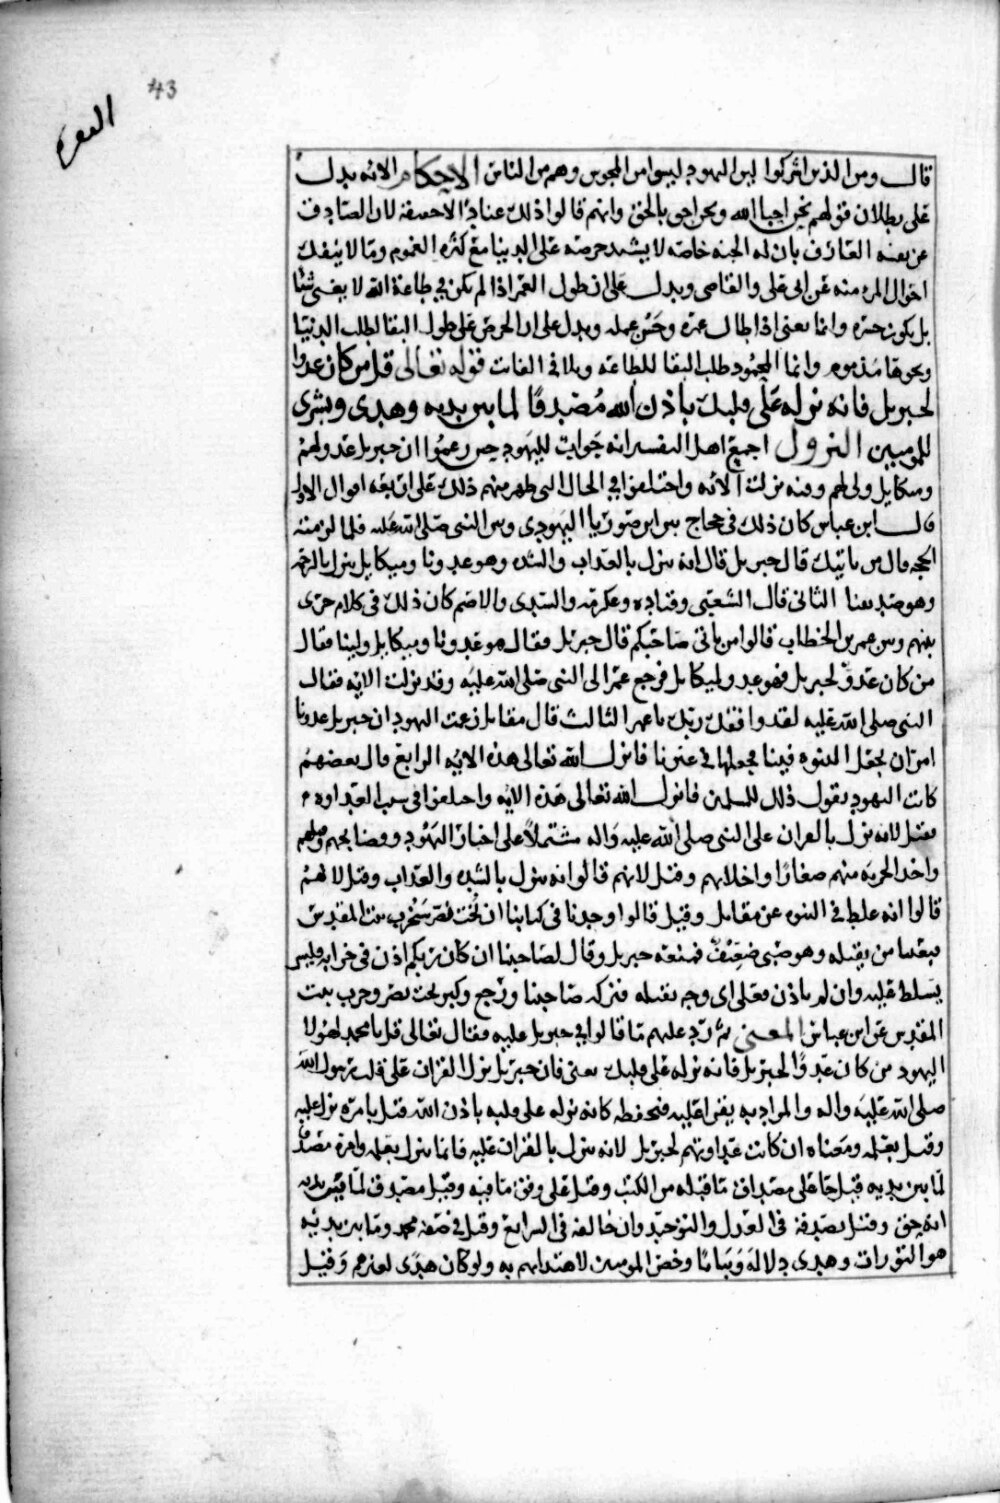 43
البقره
قال ومن الذين اشركوا ليس اليهود ليسوا من المجوس وهم من الناس الاحكام الايه يدل
على بطلان قولهم نحن احبا الله ونحن احق بالحق وانهم قالوا ذلك عنادا لا حقيقة لان الصادق
عن نفسه العارف بان له الجنه خاصه لا يشتد حرصه على الدنيا مع كثره الغموم وما لا ينفك
احوال المرء منه عن ابى على والقاضى ويدل على ان طول العمر اذا لم يكن في طاعة الله لا يغنى شيئا
بل يكون حسره وانما يعنى اذا طال عمره وحسن عمله ويدل على ان الحرص على طول البقا لطلب الدنيا
ونحوها مذموم وانما المحمود طلب البقا للطاعه وتلافى الفات قوله تعالى قل من كان عدوا
لجبريل فانه نزله على قلبك باذن الله مصدقا لما بين يديه وهدى وبشرى
للمومنين النزول اجمع اهل التفسير انه جواب لليهود حين زعموا ان جبريل عدو لهم
وميكايل ولى لهم وفيه نزلت الايه واختلفوا في الحال التى ظهر منهم ذلك على اربعه اقوال الاول
قال ابن عباس كان ذلك في حجاج بين ابن صوريا اليهودى وبين النبى صلى الله عليه فلما لزمته
الحجه قال من ياتيك قال جبريل قال انه ينزل بالعذاب والشده وهو عدونا وميكايل ينزل بالرحمه
وهو ضد هذا الثانى قال الشعبى وقتاده وعكرمه والسدى والاصم كان ذلك في كلام جرى
بينهم وبين عمر بن الخطاب قالوا من ياتى صاحبكم قال جبريل فقالـ هو عدونا وميكايل ولينا فقال
من كان عدو لجبريل فهو عدو لميكايل فرجع عمر الى النبى صلى الله عليه وقد نزلت الايه فقال
النبى صلى الله عليه لقد وافقك ربك يا عمر الثالث قال مقاتل زعمت اليهود ان جبريل عدونا
امر ان يجعل النبوه فينا فجعلها في غيرنا فانزل الله تعالى هذه الايه الرابع قال بعضهم
كانت اليهود يقول ذلك للمسلمين فانزل الله تعالى هذه الايه واختلفوا في سبب العداوه
فقيل لانه نزل بالقران على النبى صلى الله عليه واله مشتملا على اخبار اليهود وفضايحهم وقتلهم
واخذ الجزيه منهم صغارا واجلايهم وقيل لانهم قالوا انه ينزل بالشده والعذاب وقيل لانهم
قالوا انه غلط في النبوه عن مقاتل وقيل قالوا وجدنا في كتابنا ان بخت نصر سيخرب بيت المقدس
فبعثنا من يقتله وهو صبى ضعيف فمنعه جبريل وقال لصاحبنا ان كان ربكم اذن في خرابه فليس
يسلط عليه وان لم ياذن فعلى اى وجه تقتله فتركه صاحبنا ورجع وكبر بخت نصر وخرب بيت
المقدس عن ابن عباس المعنى ثم رد عليهم ما قالوا في جبريل عليه فقال تعالى قل يا محمد لهولا
اليهود من كان عدوا لجبريل فانه نزله على قلبك يعنى فان جبريل نزل القران على قلب رسول الله
صلى الله عليه واله والمراد به يقرا عليه فتحفظه كانه نزله على قلبه باذن الله قيل بامره نزل عليه
وقيل بعلمه ومعناه ان كانت عداوتهم لجبريل لانه ينزل بالقران عليه فانما ينزل بعلمه وامره مصدقا
لما بين يديه قيل جا على مصداق ما قبله من الكتب وقيل على وفق ما فيه وقيل مصدق لما بين يديه
انه حق وقيل بصدقه في العدل والتوحيد وان خالفه في الشرايع وقيل في صفه محمد وما بين يديه
هو التورات وهدى دلالة وبيانا وخص المومنين لاهتدايهم به ولو كان هدى لغيرهم وقيل